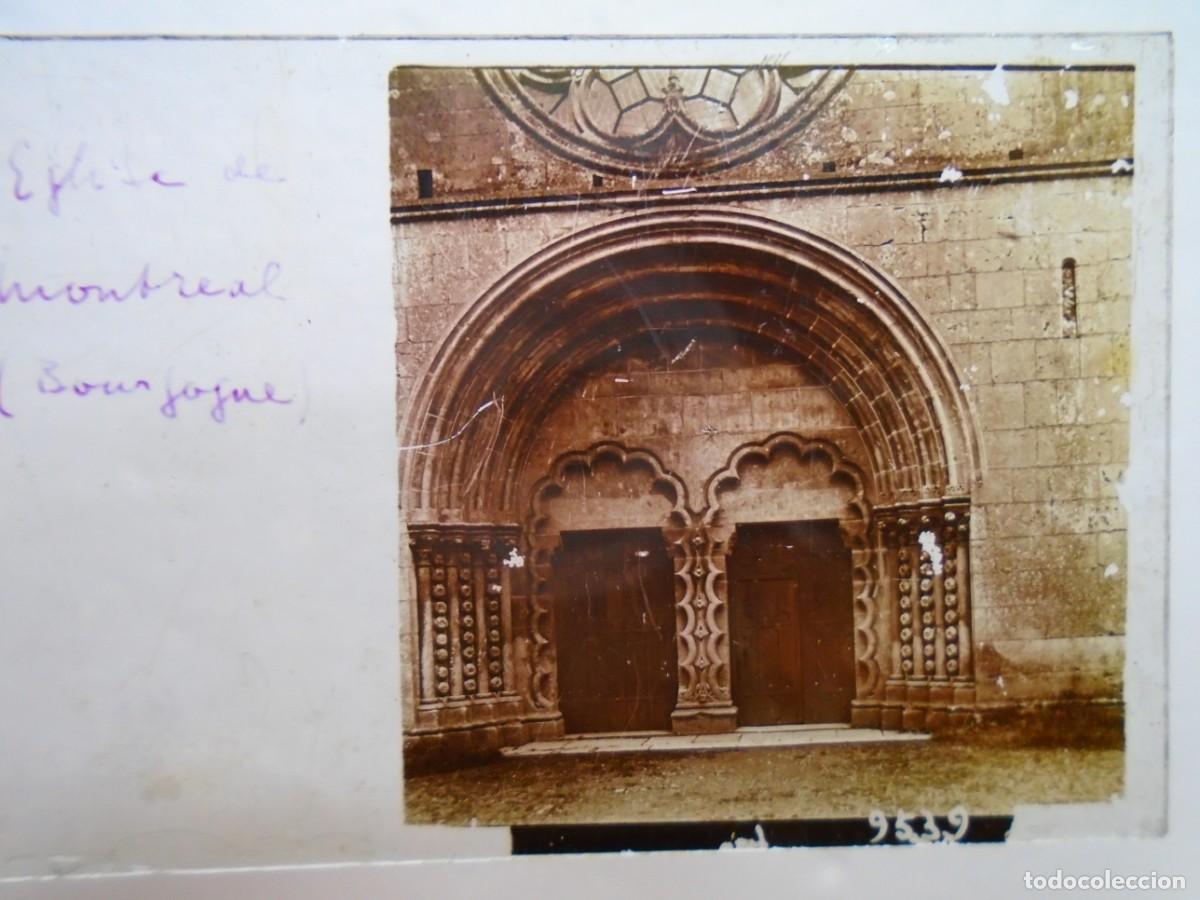 Eglise de
Montreal
(Bourgogne)
9539
todocoleccion